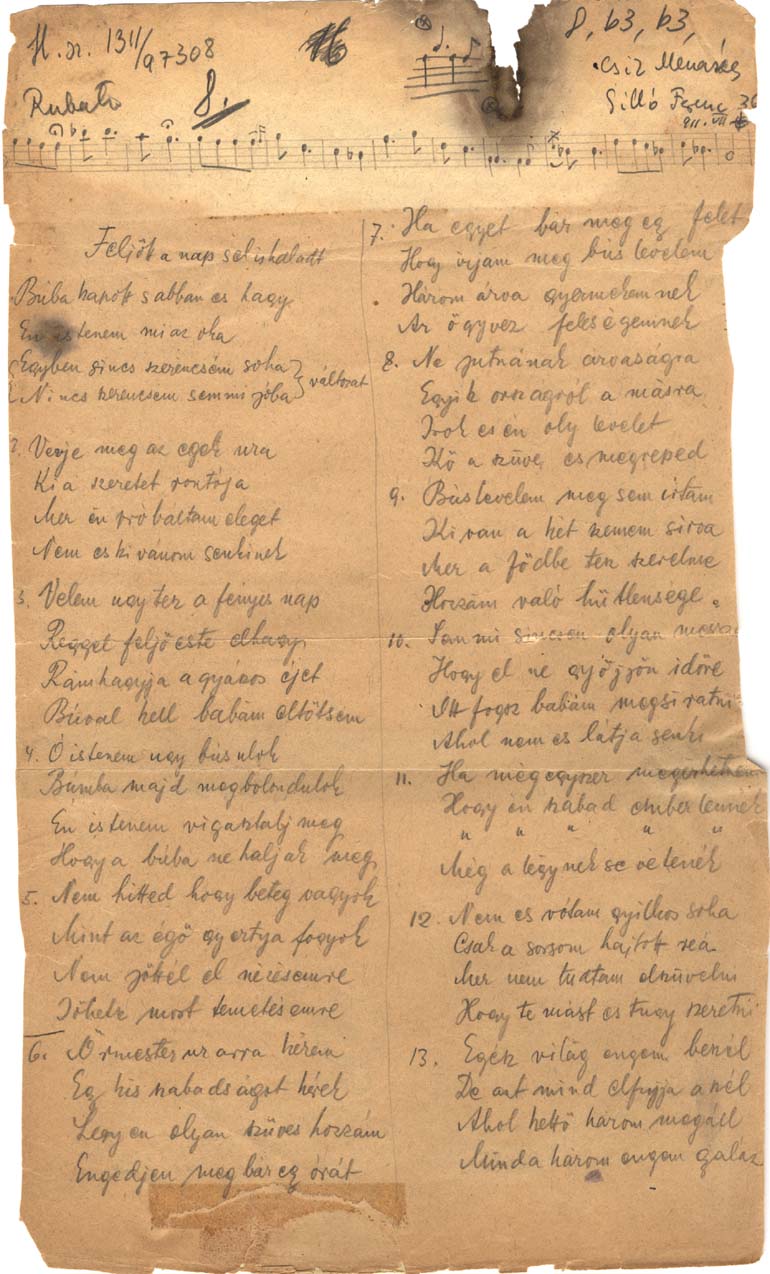 M. sz. 1311/97308
8, b3, b3,
Csík Ménaság
Gilló Ferenc 36
911. VII
Rubato 8.
Feljött a nap
Búba hagy
Én istenem mi az oka
Egyben sincs szerencsém soha
Nincs szerencsém semmi jóba } változat
2. Verje meg az egek ura
Ki a szeretet rontója
Mer én próbáltam eleget
Nem es kivánom senkinek
3. Velem ugy tesz a fényes nap
Reggel feljő este elhagy
Rám hagyja a gyászos éjet
Búval kell babám eltőtsem
4. Ó istenem ugy búsulok
Búmba majd megbolondulok
Én istenem vigasztalj meg
Hogy a búba ne haljak meg
5. Nem hitted hogy beteg vagyok
Mint az égő gyertya fogyok
Nem jöttél el nézésemre
Jöhetsz most temetésemre
6. Őrmester ur arra kérem
Eg kis szabadságot kérek
Legyen olyan szüves hozzám
Engedjen meg bár eg órát
7. Ha egyet bár meg eg felet
Hogy irjam meg bús levelem
Három árva gyermekemnek
Az özvegy feleségemnek
8. Ne jutnának árvaságra
Egyik országról a másra
Irok es én oly levelet
Kő a szüve es megreped
9. Bús levelem meg sem irtam
Ki van a két szemem sirva
Mer a födbe tesz szerelme
Hozzám való hütlensége.
10. San mi sincsen olyan messze
Hogy el ne gyöjjön időre
Itt fogsz babám megsiratni
Ahol nem es látja senki
11. Ha mégegyszer megérhetném
Hogy én szabad ember lennék
" " " " "
Még a légynek se vetenék
12. Nem es vótam gyilkos soha
Csak a sorsom hajtott reá
Mer nem tudtam elszüvelni
Hogy te mást es tugy szeretni
13. Egész világ engem beszél
De azt mind elfujja a szél
Ahol kettő három megáll
Mind a három engem gyaláz